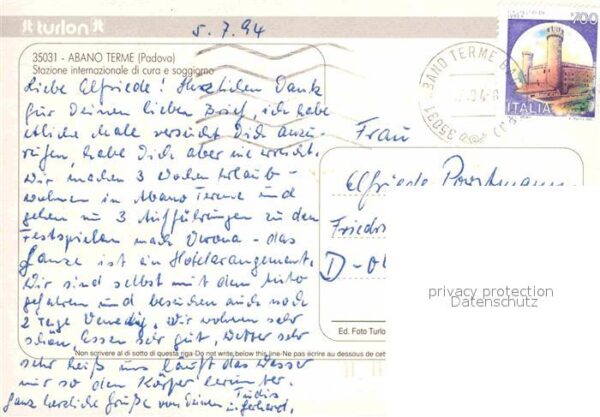 turlon
5.7.94
35031 - ABANO TERME (Padova)
Stazione internazionale di cura e soggiorno
Liebe Elfriede! Herzlichen Dank
für Deinen lieben Brief, ich habe
etliche Male versucht Dich anzu-
rufen, habe Dich aber nie erreicht.
Wir machen 3 Wochen Urlaub -
wohnen in Abano Terme und
gehen zu 3 Aufführungen zu den
Festspielen nach Verona - das
Ganze ist ein Hotelarrangement.
Wir sind selbst mit dem Auto
gefahren und besuchen auch noch
2 Tage Venedig. Wir wohnen sehr
schön, Essen sehr gut, Wetter sehr
Non scrivere al di sotto di questa riga-Do not write below this line-Ne pas écrire au dessous de cette
sehr heiß uns läuft das Wasser
nur so den Körper herunter.
Ganz herzliche Grüße von Deinen
u. Gerhard,
700
ITALIA
35031 ABANO TERME
Frau
Elfriede
Friedr
D-
Ed. Foto Turlo
privacy protection
Datenschutz